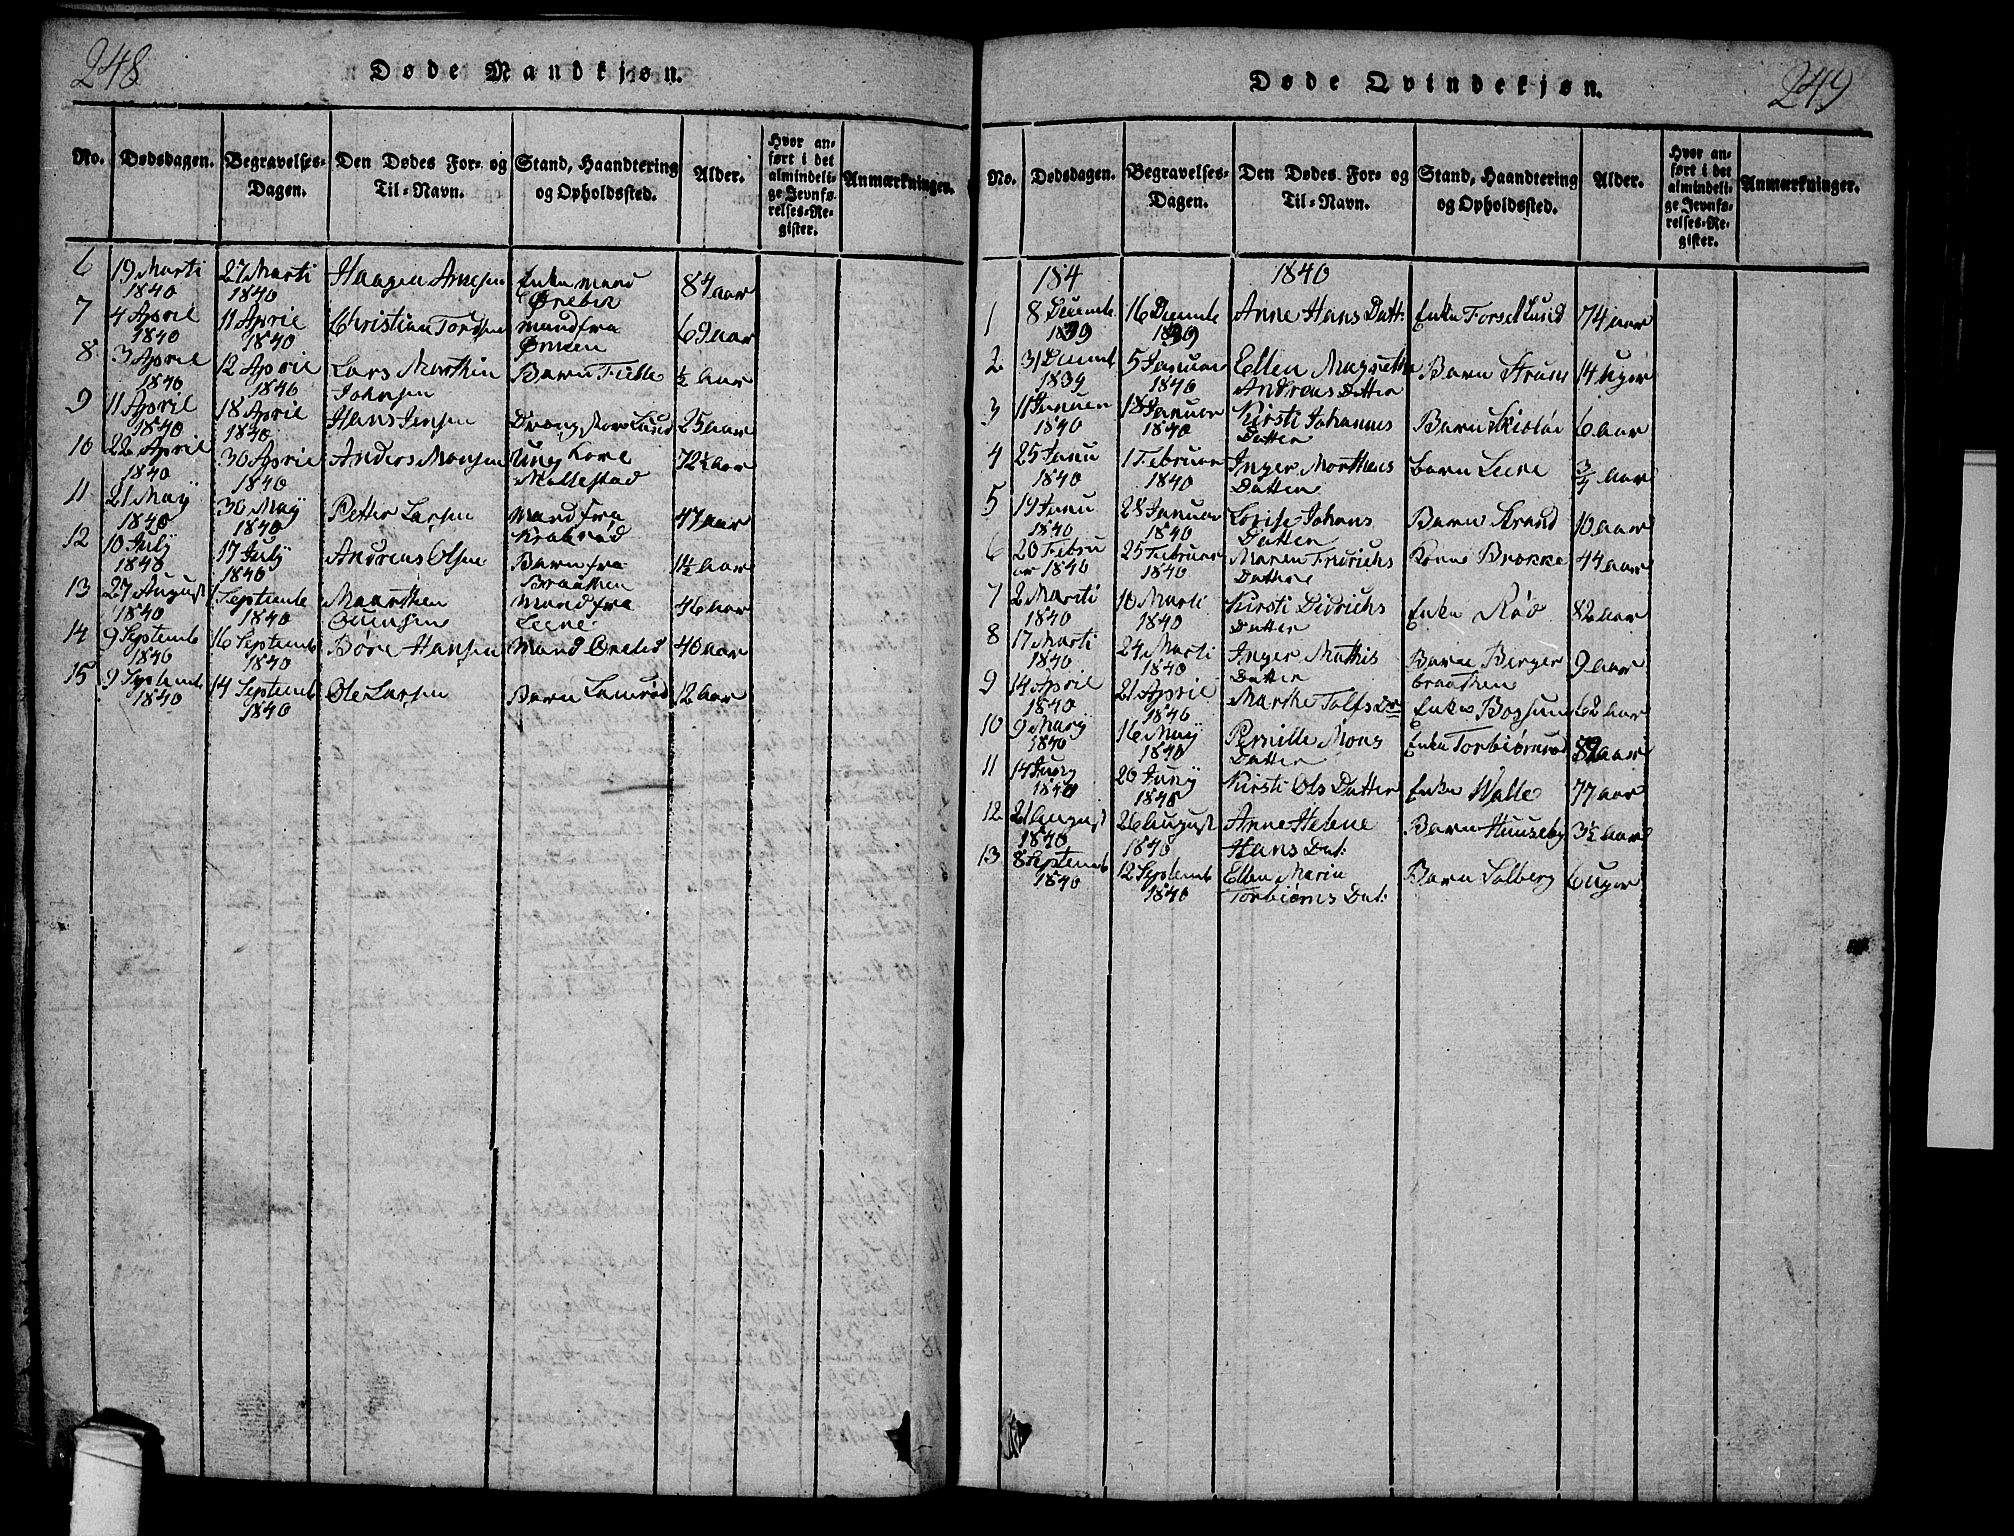 248
Døde Mandkjøn.
No. Dødsdagen. Begravelses-Dagen. Den Dødes For- og Til-Navn. Stand, Haandtering og Opholdssted. Alder. Hvor anført i det almindelige Jevnførelses-Register. Anmærkninger.
6 19 Marti 1840 27 Marti 1840 Haagen Arnesen Enkemand Ørebek 84 aar
7 4 April 1840 11 April 1840 Christian Mand fra 69 aar
8 3 April 1840 12 April 1840 Lars Marthin Johnsen Barn ½ aar
9 11 April 1840 18 April 1840 Hans Jensen Dreng 25 aar
10 22 April 1840 30 April 1840 Anders Monsen Ung Mallestad
11 21 May 1840 30 May 1840 Petter Larsen Mand fra Krakerød 47 aar
12 10 July 1840 17 July 1840 Andreas Olsen Barn fra Braathen 1½ aar
13 27 August 1840 Septembe 1840 Marthen Mand fra Leene 46 aar
14 9 Septemb 1840 16 Septemb 1840 Børe Hansen Mand 40 aar
15 9 Septemb 1840 14 Septemb 1840 Ole Larsen Barn 12 aar
Døde Qvindekjøn.
249
No. Dødsdagen. Begravelses-Dagen. Den Dødes For- og Til-Navn. Stand, Haandtering og Opholdssted. Alder. Hvor anført i det almindelige Jevnførelses-Register. Anmærkninger.
184 1840
1 8 Decemb 1839 16 Decemb 1839 Anne Hans Datt: Enke Forseklund 74 aar
2 31 Decemb 1839 5 Januar 1840 Ellen Magrethe Andreas Datter Barn 14 Uger
3 11 Januar 1840 18 Januar 1840 Kirsti Johannes Datter Barn 6 aar
4 25 Janu 1840 1 Februar 1840 Inger Morthens Datter barn Leene ¾ aar
5 19 Janu 1840 28 Januar 1840 Lovise Johans Datter Barn Strand 10 aar
6 20 Februar 1840 25 Februar 1840 Maren Fridrichs Datter Kone Brokke 44 aar
7 2 Marti 1840 10 Marti 1840 Kirsti Didrichs Datter Enke Rød 82 aar
8 17 Marti 1840 24 Marti 1840 Inger Mathis Datter Barn Berger braathen 9 aar
9 14 April 1840 21 April 1840 Marthe Tolfs Dr Enke 62 aar
10 9 May 1840 16 May 1840 Pernille Mons Datter Enke Torbiørnrød aar
11 14 Juny 1840 20 Juny 1840 Kirsti Ols Datter Enke Walle 77 aar
12 21 August 1840 26 August 1840 Anne Helene Hans Dat: Barn Huuseby 3½ aar
13 8 Septemb 1840 12 Septemb 1840 Ellen Maria Torbiørns Dat: Barn Solberg 6 Uger